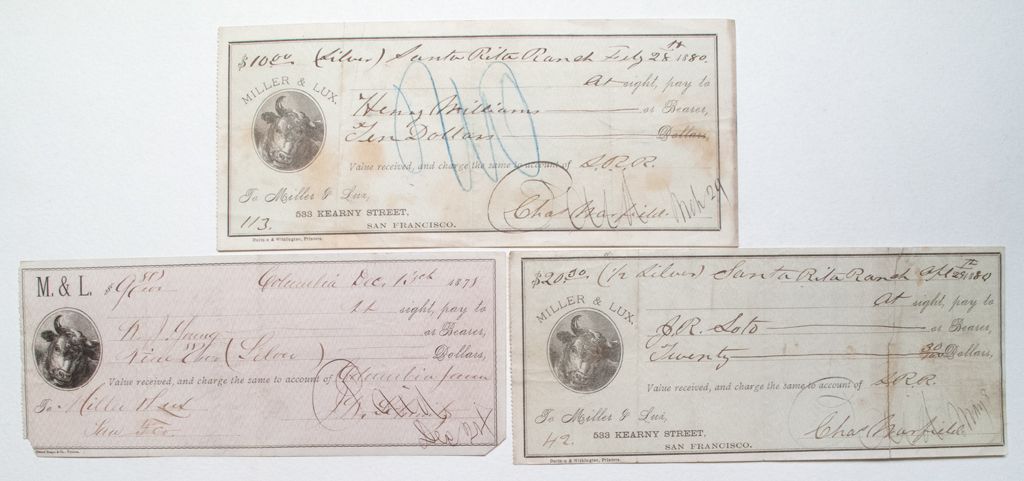 $10.00 (Silver) Santa Rita Ranch Feby 28th 1880.
MILLER & LUX.
At sight, pay to
Henry Williams or Bearer,
Ten Dollars Dollars
Value received, and charge the same to account of S.R.R.
To Miller & Lux,
533 KEARNY STREET,
SAN FRANCISCO.
Chas Warfield.
Mch 29
113.
M. & L. $9 Columbia Dec. 13th 187
At sight, pay to
N. J. Young or Bearer,
Nine Dollars,
Value received, and charge the same to account of Columbia
To Miller & Lux
San Fco.
Dec 24
$20.30. (1/2 Silver) Santa Rita Ranch Apl 28th 1880
MILLER & LUX.
At sight, pay to
J.R. Soto or Bearer,
Twenty 30/100 Dollars,
Value received, and charge the same to account of S.R.R.
To Miller & Lux,
42.
533 KEARNY STREET,
SAN FRANCISCO.
Chas Warfield
May